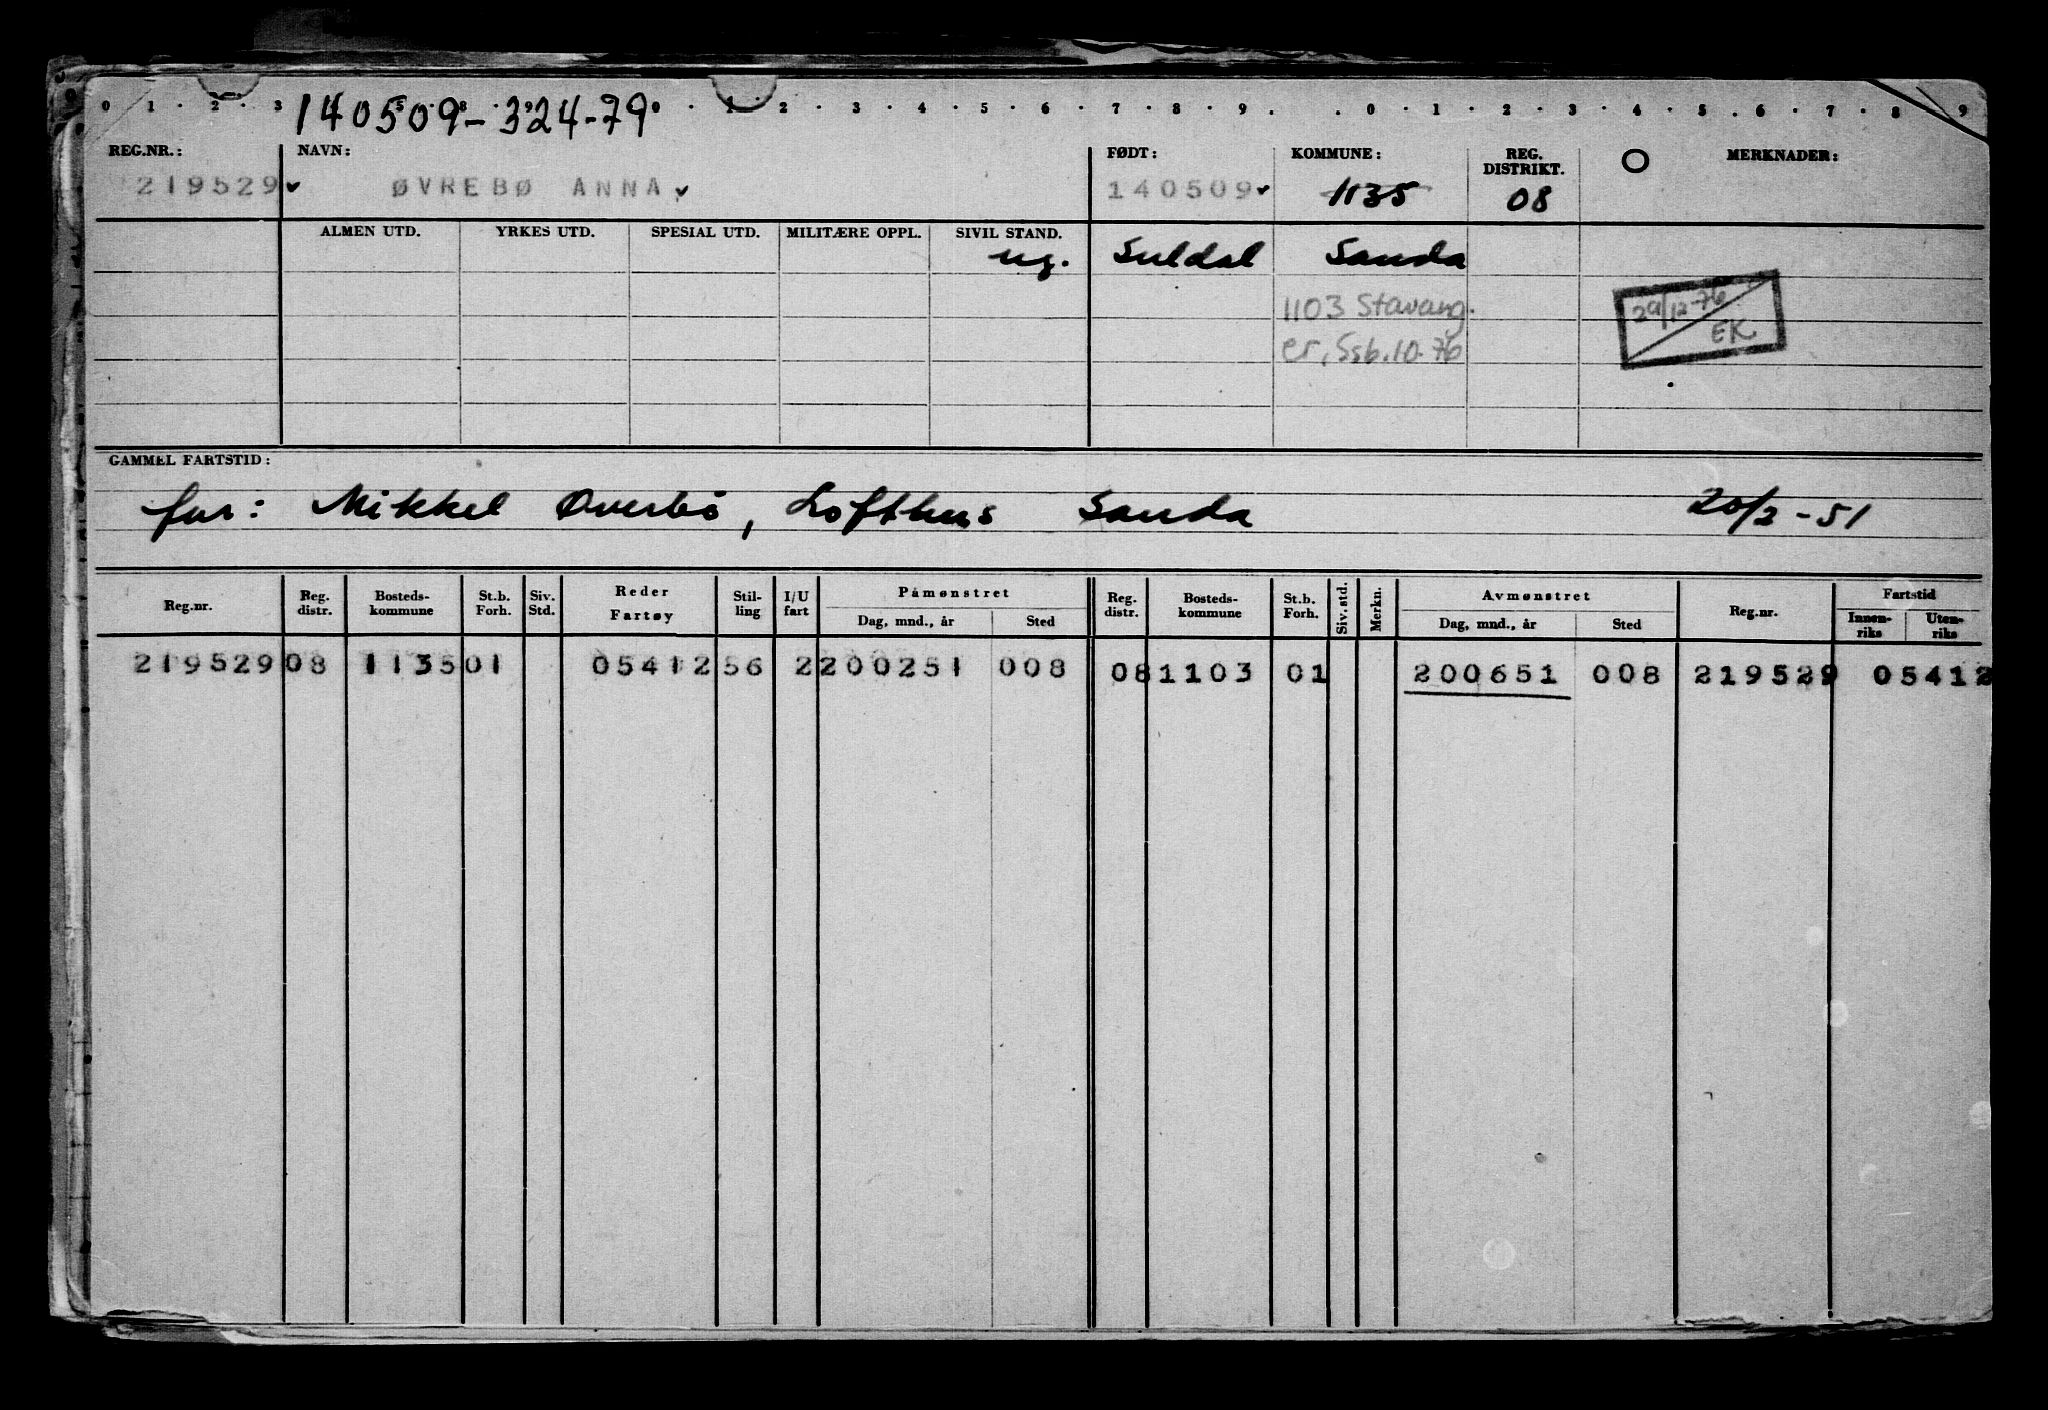 0 1 . 2 . 3 . 5 . 8 . 9 . 0 . 1 . 2 . 3 . 4 . 5 . 6 . 7 . 8 . 9 . . 0 . 1 . 2 . 3 . 4 . 5 . 6 . 7 . 8 . 9
140509-324-79
REG.NR.: NAVN: FØDT: KOMMUNE: REG. DISTRIKT. O MERKNADER:
219529 ØVREBØ ANNA 140509 1135 08
ALMEN UTD. YRKES UTD. SPESIAL UTD. MILITÆRE OPPL. SIVIL STAND.
ug. Suldal Sauda
1103 Stavang.
er, Ssb. 10.76
29/12-76
EK
GAMMEL FARTSTID:
far: Mikkel Øverbø, Lofthus Sauda 20/2-51
Reg.nr. Reg. distr. Bosteds-kommune St.b. Forh. Siv. Std. Reder Fartøy Stil-ling I/U fart Påmønstret Reg. distr. Bosteds-kommune St.b. Forh. Siv. std. Merkn. Avmønstret Reg.nr. Fartstid
Dag, mnd., år Sted Dag, mnd., år Sted Innen-riks Uten-riks
219529 08 1135 01 05412 56 2 200251 008 08 1103 01 200651 008 219529 05412